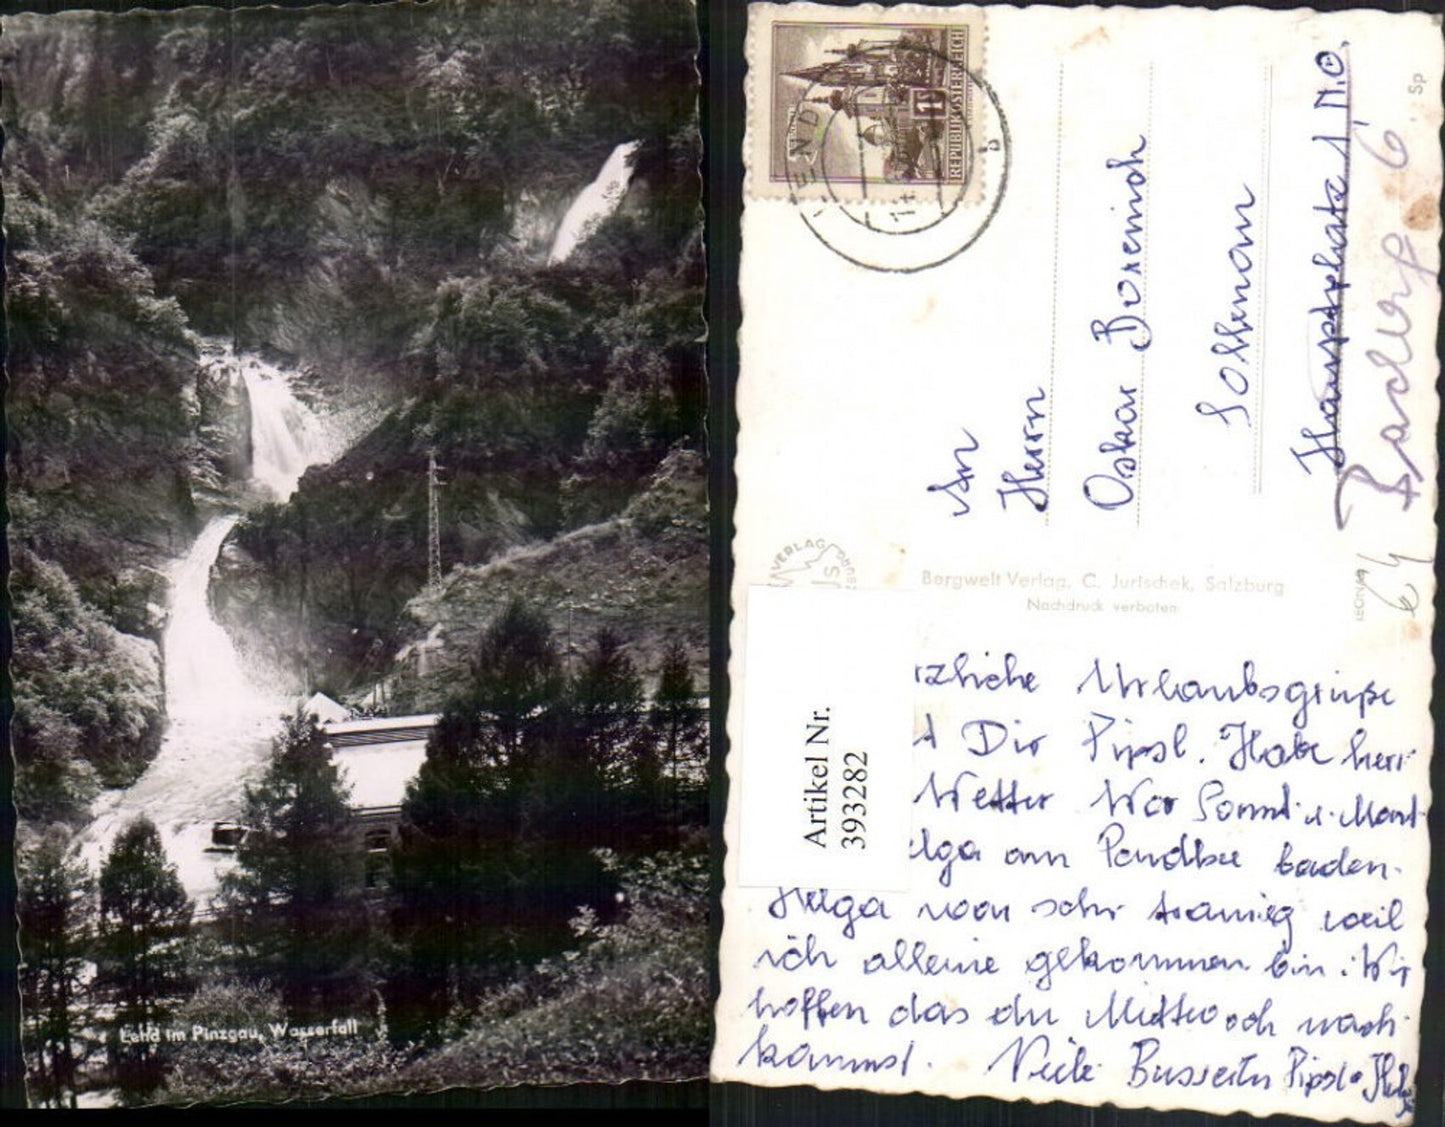 Lend im Pinzgau, Wasserfall
REPUBLIK ÖSTERREICH
1
LEND
b
An
Herrn
Oskar
Hauptplatz 1 N.Ö.
6
Sp
VERLAG
Bergwelt Verlag, C. Jurischek, Salzburg
Nachdruck verboten
Artikel Nr.
393282
rzliche Urlaubsgrüße
Dir Pipsl. Habe herr
Wetter War Sonnt. u. Mont
elga am baden.
Helga war sehr traurig weil
ich alleine gekommen bin. Wir
hoffen das du Mittwoch nach
kommst. Viele Busserln Pipsl